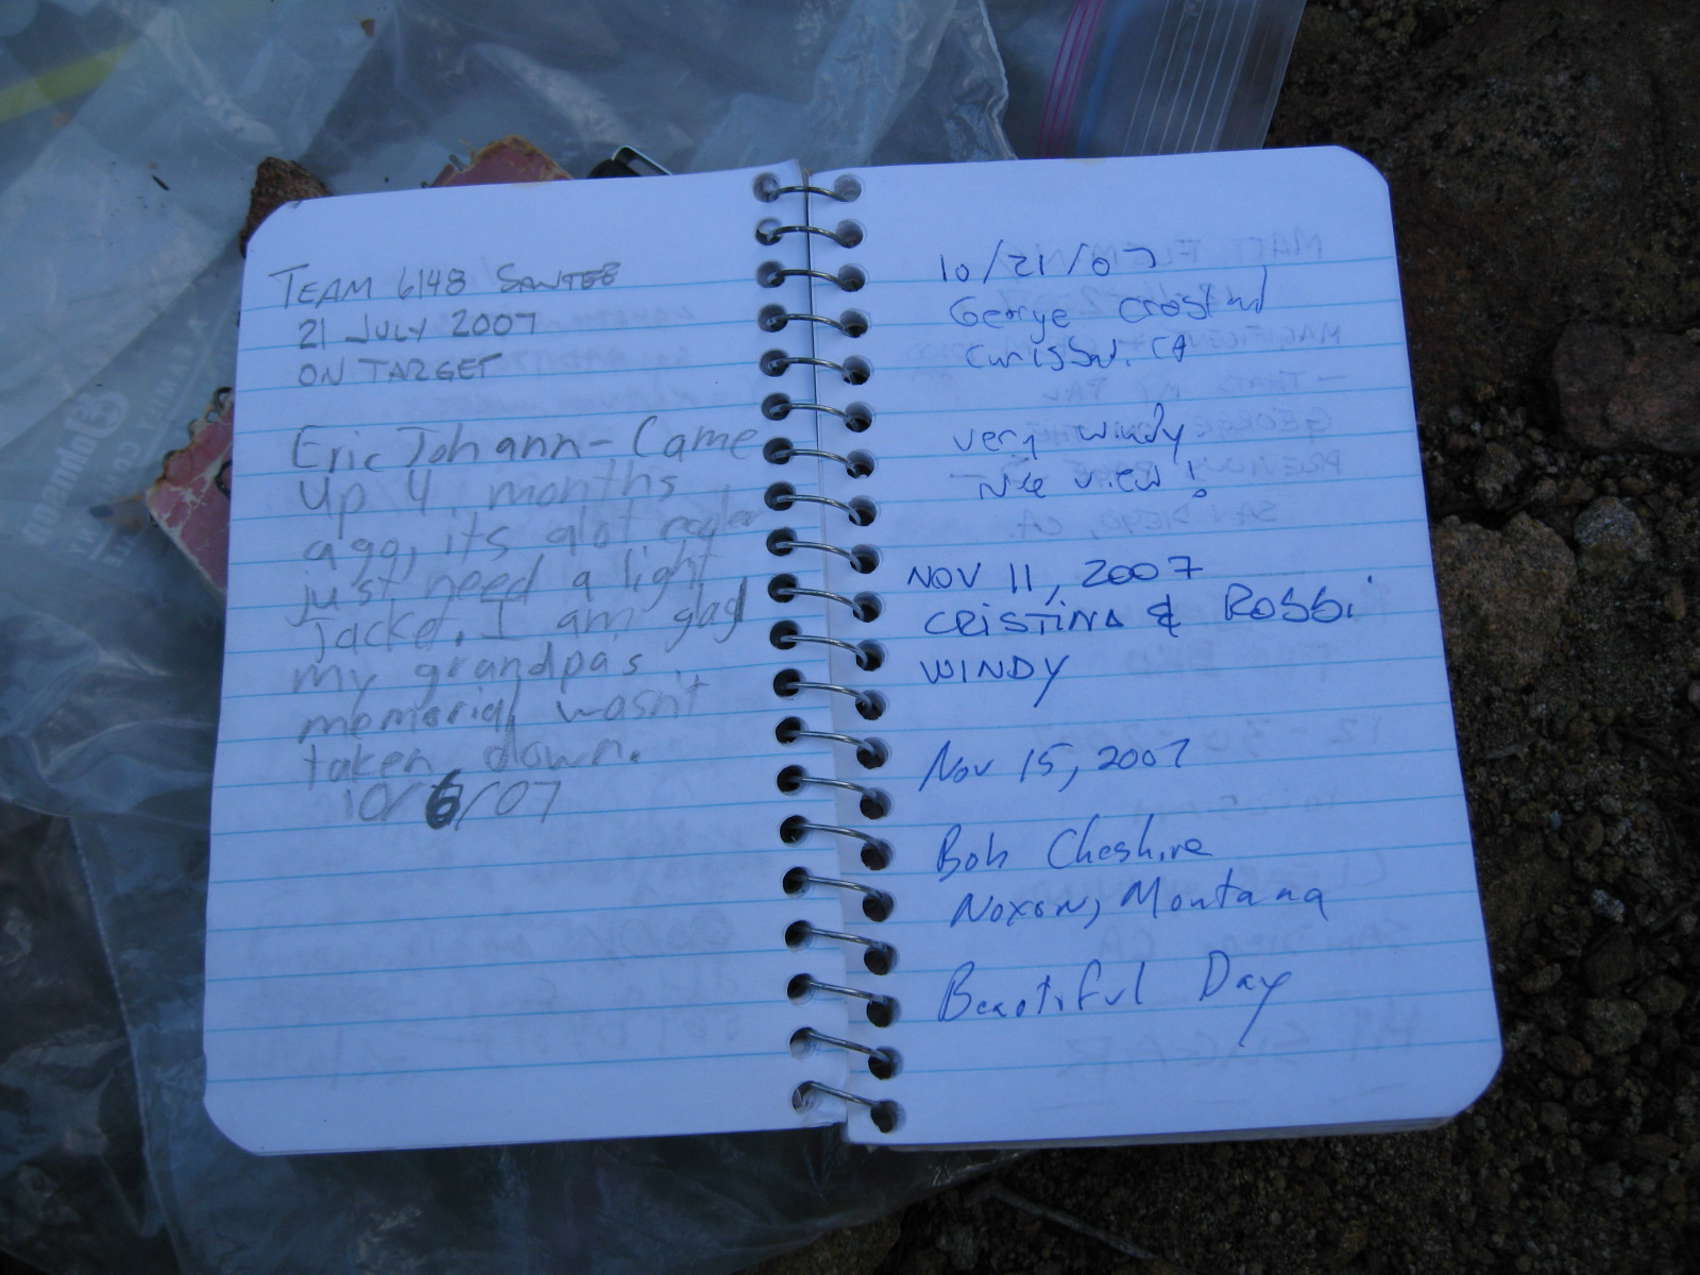 TEAM 6148 SANTEE
21 JULY 2007
ON TARGET
Eric Johann - Came
up 4 months
ago, its alot cooler
just need a light
Jacket, I am glad
my grandpas
memorial wasn't
taken down.
10/6/07
10/21/07
George
CA
very windy
Nice view!
NOV 11, 2007
CRISTINA & ROBBi
WINDY
Nov 15, 2007
Bob Cheshire
Noxon, Montana
Beautiful Day